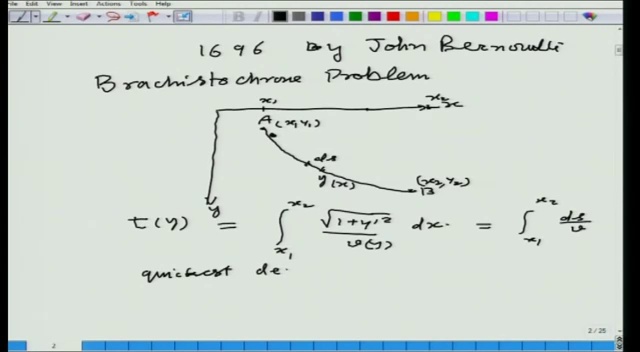 File Edit View Insert Actions Tools Help
1696 By John Bernoulli
Brachistochrone Problem
x₁ x₂ x
A (x₁, y₁)
ds
y(x)
(x₂, y₂)
B
y
τ(y) = ∫_{x₁}^{x₂} √(1+y'²) / v(y) dx. = ∫_{x₁}^{x₂} ds/v
quickest de.
2 / 25
2